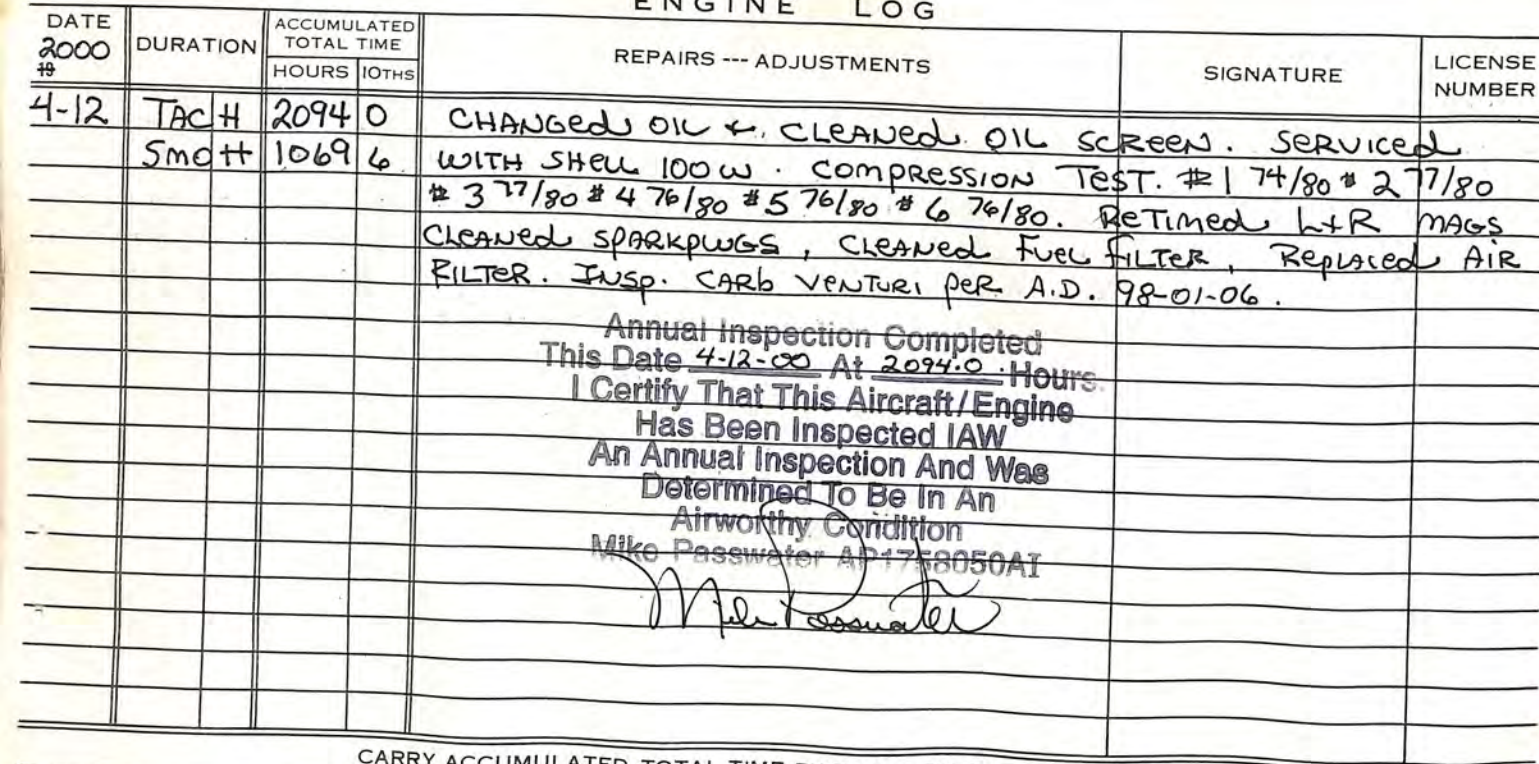 ENGINE LOG
DATE 2000 19 DURATION ACCUMULATED TOTAL TIME HOURS 10THS REPAIRS --- ADJUSTMENTS SIGNATURE LICENSE NUMBER
4-12 TAC H 2094 0 CHANGED OIL & CLEANED OIL SCREEN. SERVICED
SMO H 1069 6 WITH SHELL 100W. COMPRESSION TEST. #1 74/80 #2 77/80
#3 77/80 #4 76/80 #5 76/80 #6 76/80. RETIMED L+R MAGS
CLEANED SPARKPLUGS, CLEANED FUEL FILTER, REPLACED AIR
FILTER. INSP. CARB VENTURI PER A.D. 98-01-06.
Annual Inspection Completed
This Date 4-12-00 At 2094.0 Hours.
I Certify That This Aircraft/Engine
Has Been Inspected IAW
An Annual Inspection And Was
Determined To Be In An
Airworthy Condition
Mike Passwater AP1758050AI
Mike Passwater